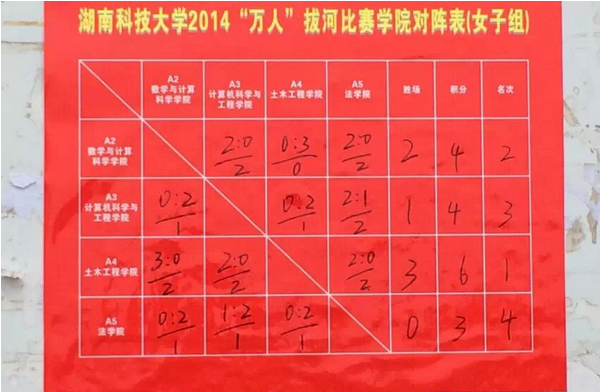 湖南科技大学2014“万人”拔河比赛学院对阵表(女子组)
A2 数学与计算科学学院 A3 计算机科学与工程学院 A4 土木工程学院 A5 法学院 胜场 积分 名次
A2 数学与计算科学学院 2:0/2 0:3/0 2:0/2 2 4 2
A3 计算机科学与工程学院 0:2/1 0:2/1 2:1/2 1 4 3
A4 土木工程学院 3:0/2 2:0/2 2:0/2 3 6 1
A5 法学院 0:2/1 1:2/1 0:2/1 0 3 4